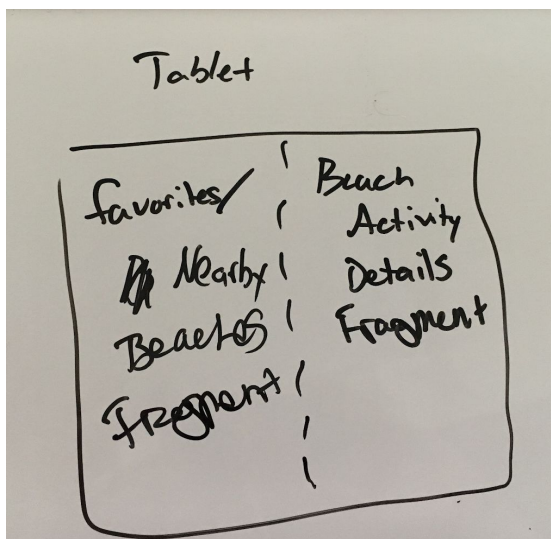 Tablet
favorites/
Nearby
Beaches
Fragment
Beach
Activity
Details
Fragment